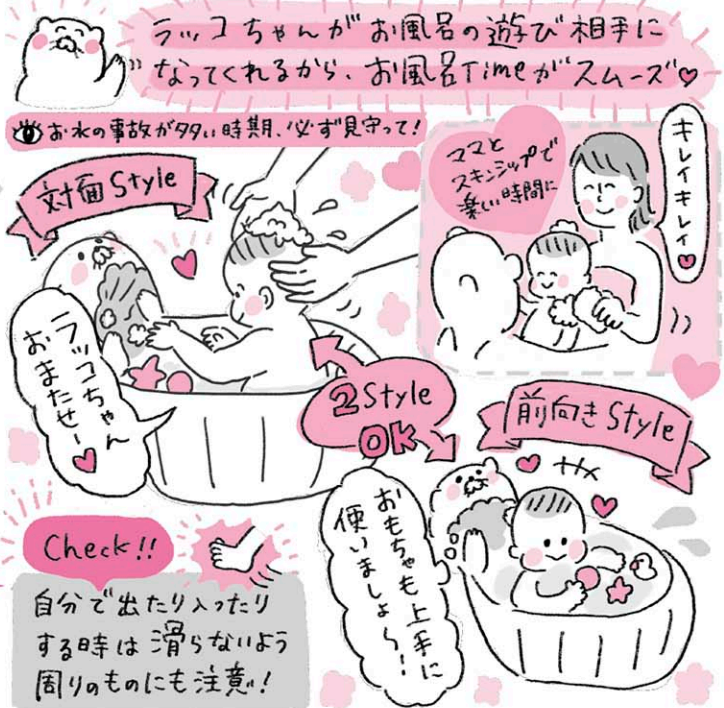 ラッコちゃんがお風呂の遊び相手に
なってくれるから、お風呂Timeがスムーズ♡
お水の事故が多い時期、必ず見守って!
ママと
スキンシップで
楽しい時間に
キレイキレイ♡
対面Style
ラッコちゃん
おまたせー♡
2Style
OK
前向きStyle
おもちゃも上手に
使いましょう!
Check!!
自分で出たり入ったり
する時は滑らないよう
周りのものにも注意!